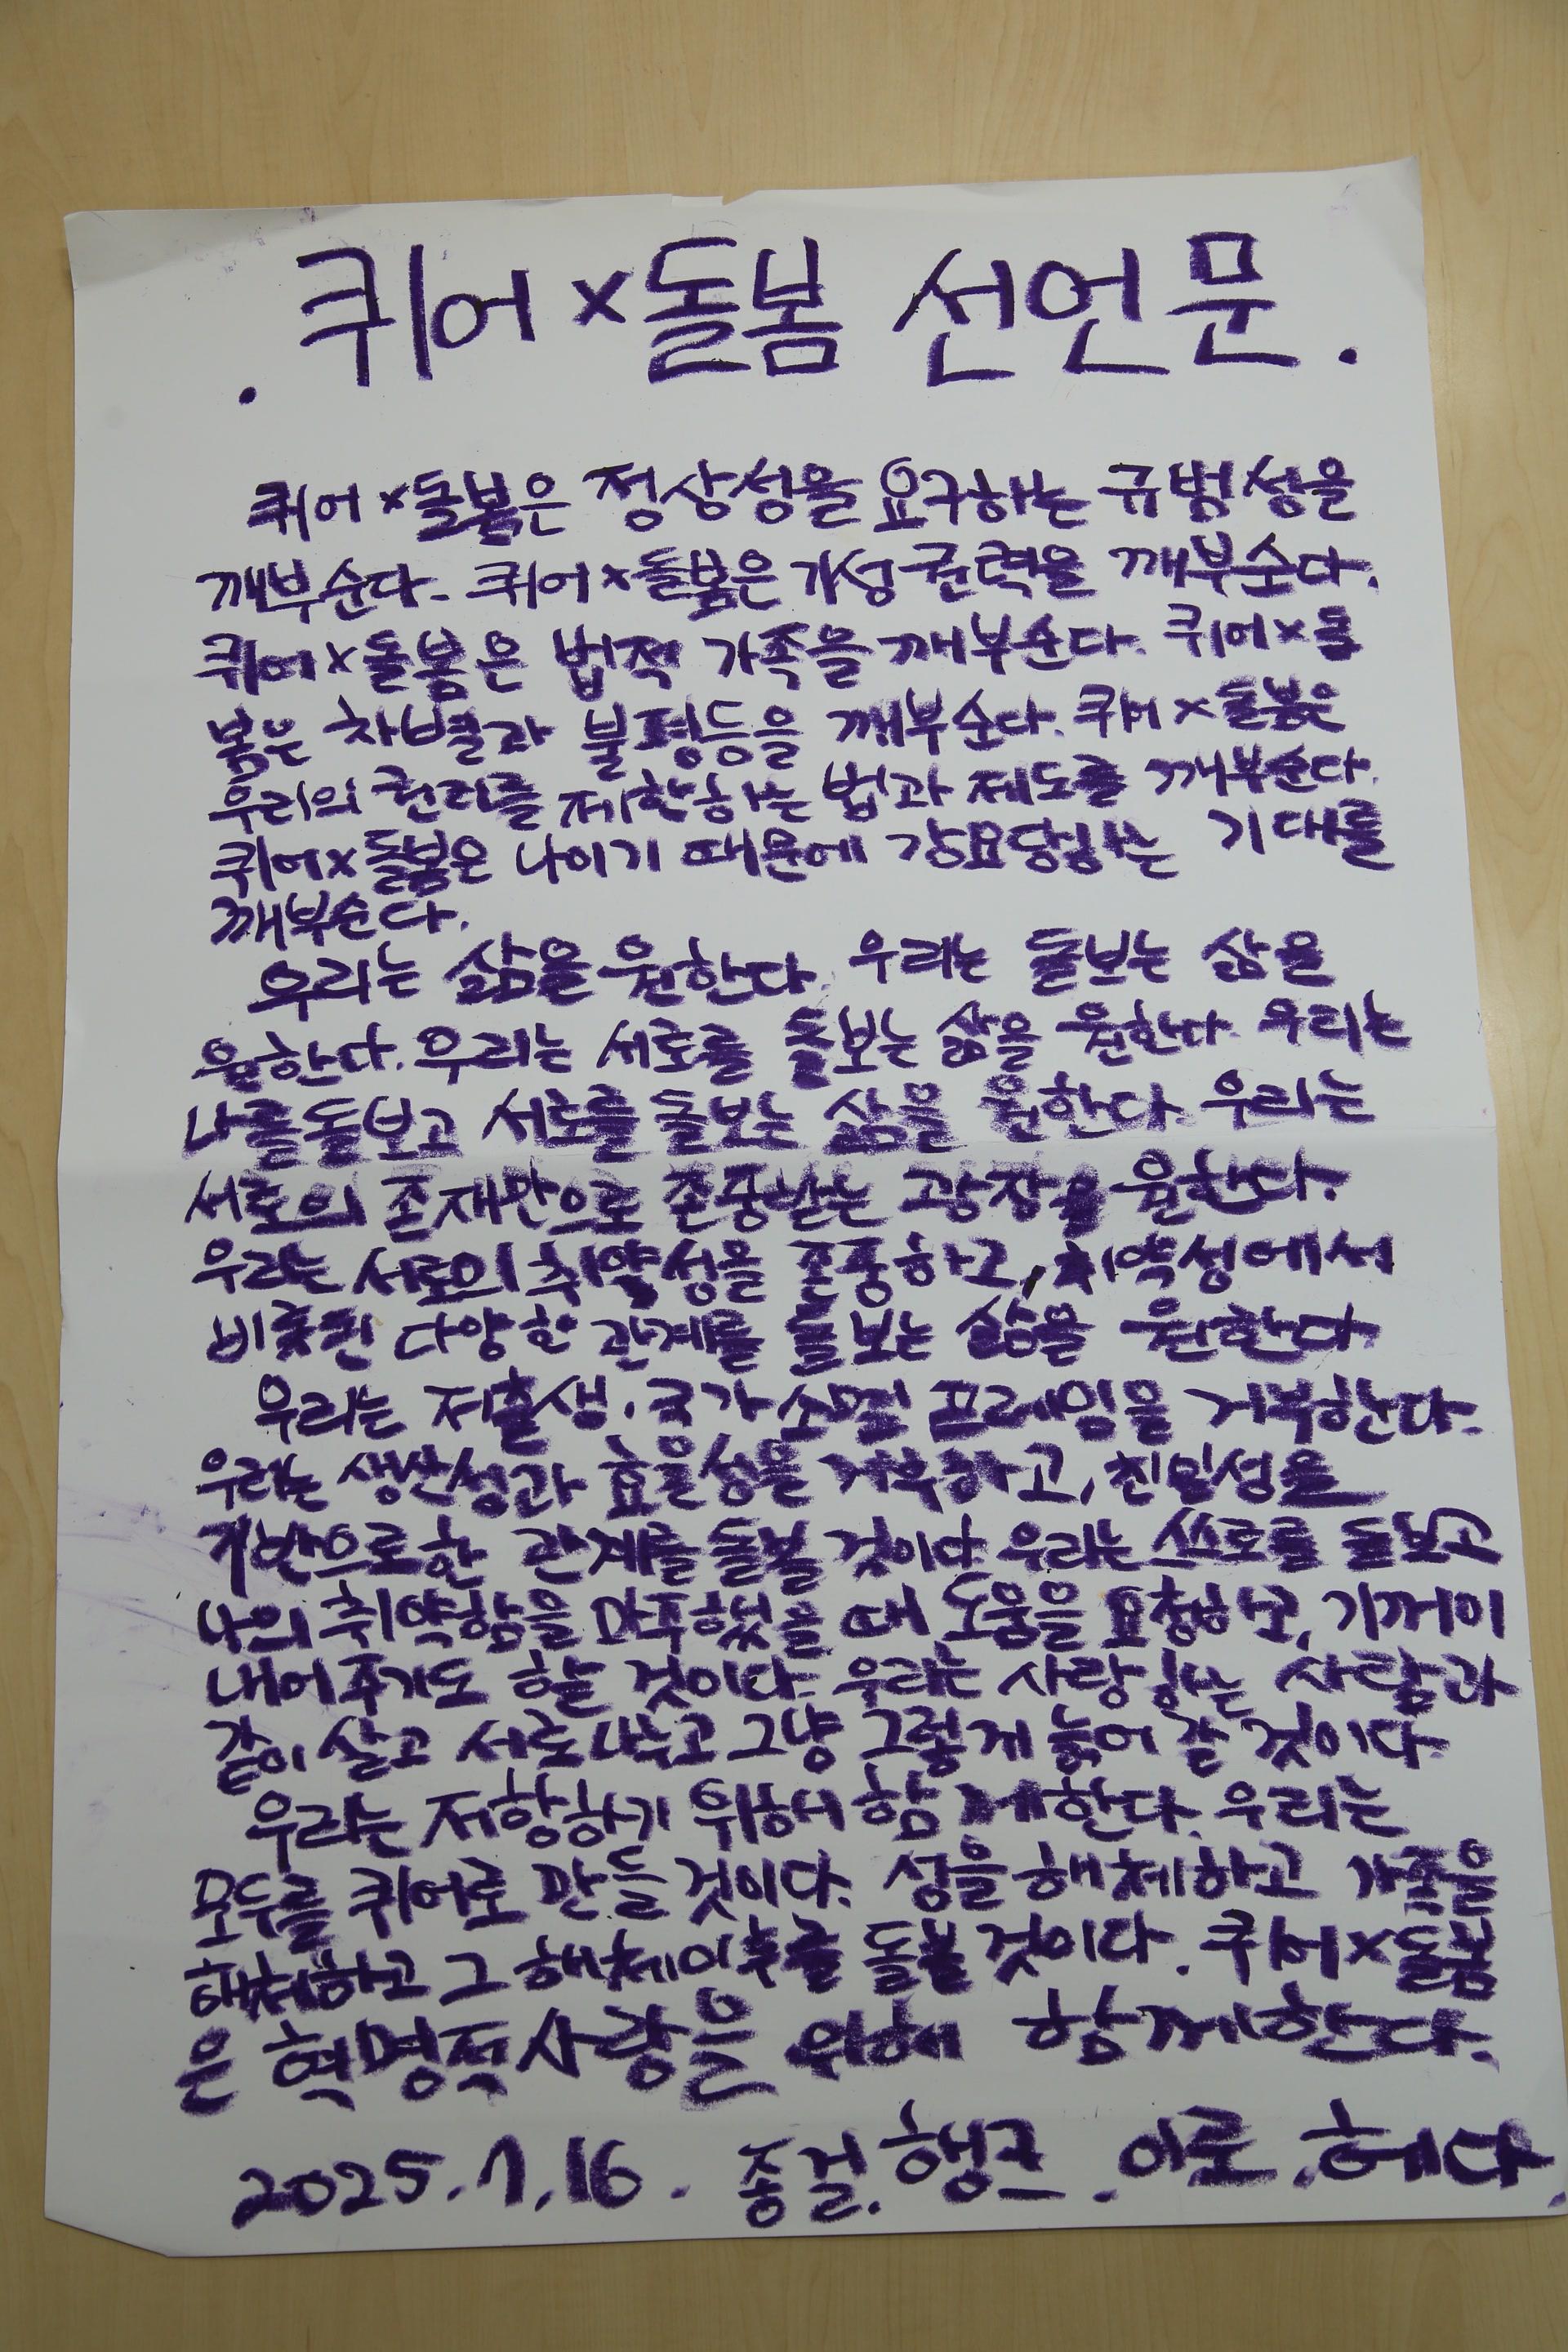 . 퀴어×돌봄 선언문.
퀴어×돌봄은 정상성을 요구하는 규범성을
깨부순다. 퀴어×돌봄은 가성권력을 깨부순다.
퀴어×돌봄은 법적 가족을 깨부순다. 퀴어×돌
봄은 차별과 불평등을 깨부순다. 퀴어×돌봄은
우리의 권리를 제한하는 법과 제도를 깨부순다.
퀴어×돌봄은 나이기 때문에 강요당하는 기대를
깨부순다.
우리는 삶을 원한다. 우리는 돌보는 삶을
원한다. 우리는 서로를 돌보는 삶을 원한다. 우리는
나를 돌보고 서로를 돌보는 삶을 원한다. 우리는
서로의 존재만으로 존중받는 광장을 원한다.
우리는 서로의 취약성을 존중하고, 취약성에서
비롯된 다양한 관계를 돌보는 삶을 원한다.
우리는 저출생·국가소멸 프레임을 거부한다.
우리는 생산성과 효율성을 거부하고, 친밀성을
기반으로 한 관계를 돌볼 것이다. 우리는 스스로를 돌보고
나의 취약함을 마주했을 때 도움을 요청하고, 기꺼이
내어주기도 할 것이다. 우리는 사랑하는 사람과
같이 살고 서로 나누고 그냥 그렇게 늙어 갈 것이다.
우리는 저항하기 위해 함께한다. 우리는
모두를 퀴어로 만들 것이다. 성을 해체하고 가족을
해체하고 그 해체 이후를 돌볼 것이다. 퀴어×돌봄
은 혁명적 사랑을 위해 함께한다.
2025.7.16. 종걸. 행크. 이로. 헤다.